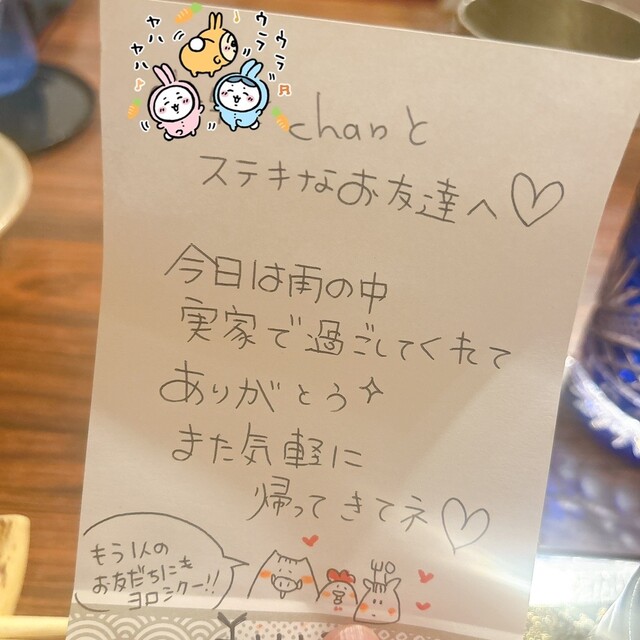 ヤハ
ヤハ
ウラ
ウラ
chanと
ステキなお友達へ♡
今日は雨の中
実家で過ごしてくれて
ありがとう✧
また気軽に
帰ってきてネ♡
もう1人の
お友だちにも
ヨロシクー!!